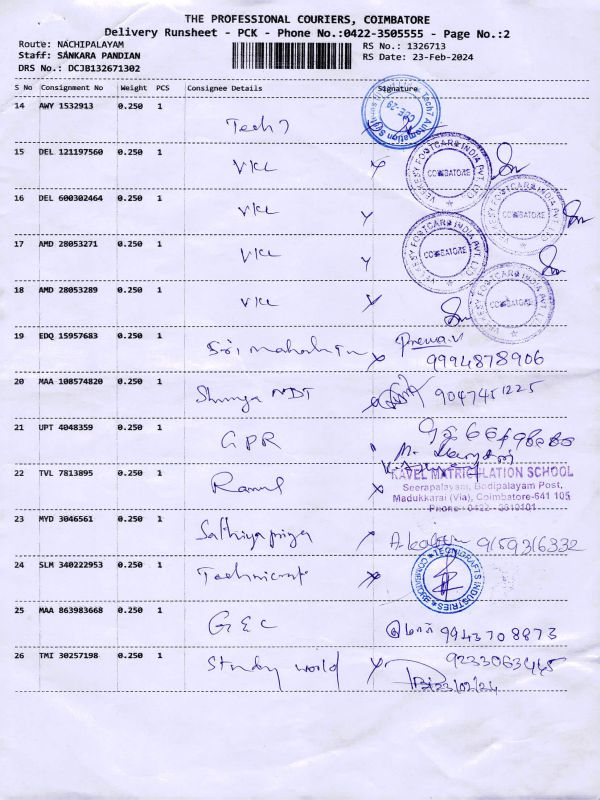 THE PROFESSIONAL COURIERS, COIMBATORE
Delivery Runsheet - PCK - Phone No.:0422-3505555 - Page No.:2
Route: NACHIPALAYAM
RS No.: 1326713
Staff: SANKARA PANDIAN
RS Date: 23-Feb-2024
DRS No.: DCJB132671302
S No Consignment No Weight PCS Consignee Details Signature
14 AWY 1532913 0.250 1
Tech 7
15 DEL 121197560 0.250 1
VKC
VEEKESY FOOTCARE INDIA PVT. LTD
COIMBATORE
16 DEL 600302464 0.250 1
VKC
VEEKESY FOOTCARE INDIA PVT. LTD
COIMBATORE
17 AMD 28053271 0.250 1
VKC
VEEKESY FOOTCARE INDIA PVT. LTD
COIMBATORE
18 AMD 28053289 0.250 1
VKC
VEEKESY FOOTCARE INDIA PVT. LTD
COIMBATORE
19 EDQ 15957683 0.250 1
Sri
9994878906
20 MAA 108574820 0.250 1
NDT 9047451225
21 UPT 4048359 0.250 1
GPR
22 TVL 7813895 0.250 1
KAVEL MATRICULATION SCHOOL
Seerapalayam, Bodipalayam Post,
Madukkarai (Via), Coimbatore-641 105
Phone : 0422 - 2610101
23 MYD 3046561 0.250 1
Sathiyapriya 9159316332
24 SLM 340222953 0.250 1
Technicraft
TECHNICRAFTS INDUSTRIES
COIMBATORE
25 MAA 863983668 0.250 1
GEC 9943708873
26 TMI 30257198 0.250 1
Study world 9233063445
23/02/24